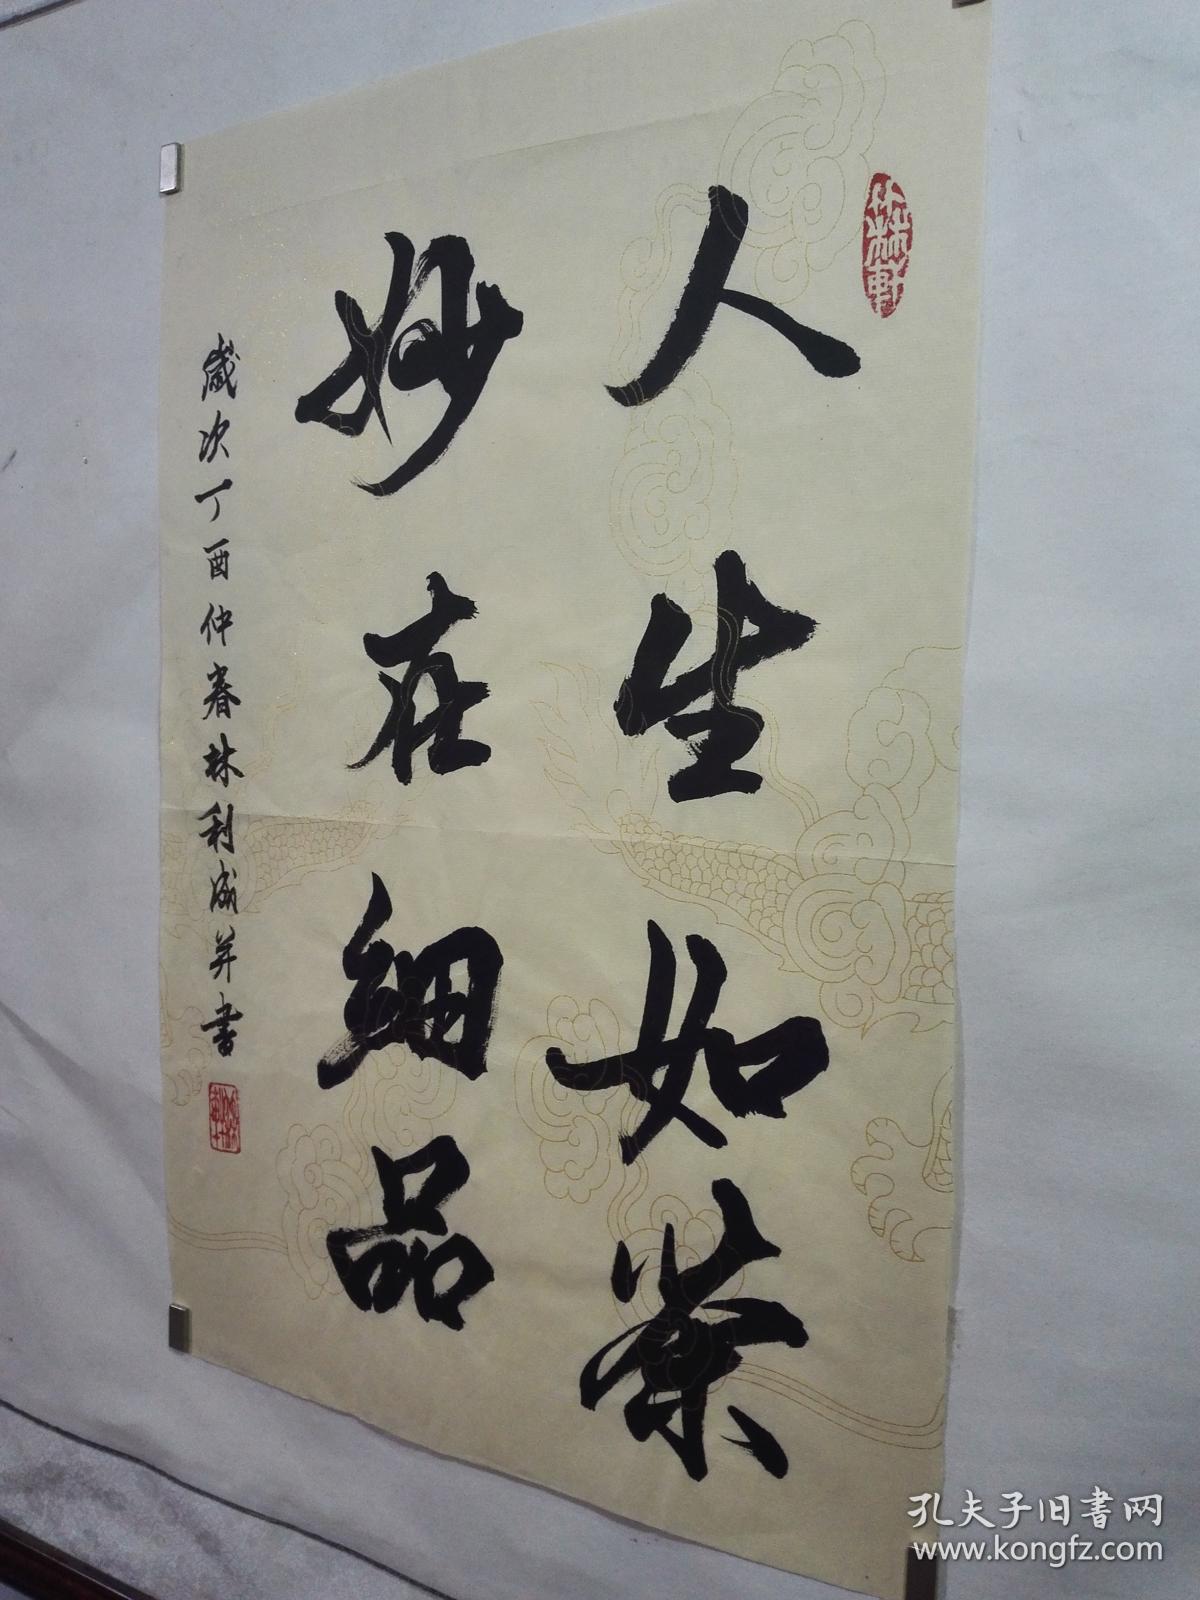 竹林軒
人生如茶
妙在细品
歲次丁酉仲春林利成并書
孔夫子旧书网
www.kongfz.com